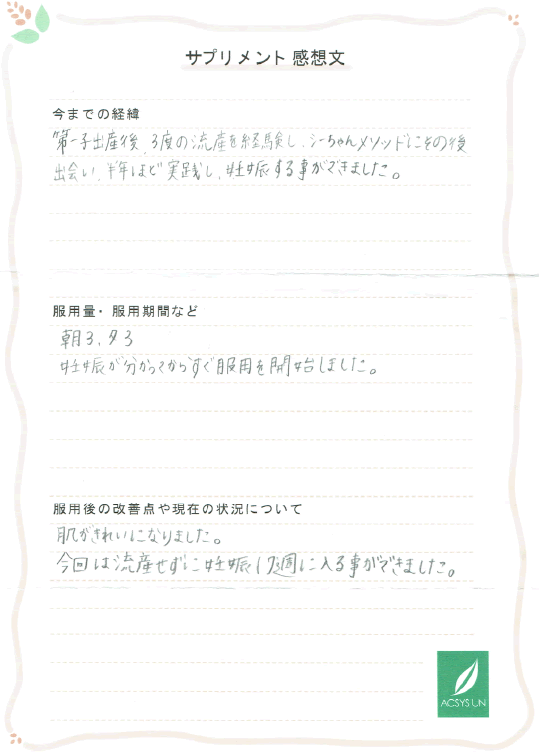 サプリメント 感想文
今までの経緯
第一子出産後、3度の流産を経験し、シーちゃんメソッドにその後
出会い、半年ほど実践し、妊娠する事ができました。
服用量・服用期間など
朝3、夕3
妊娠が分かってからすぐ服用を開始しました。
服用後の改善点や現在の状況について
肌がきれいになりました。
今回は流産せずに妊娠17週に入る事ができました。
ACSYSUN